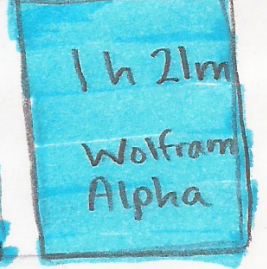 1 h 21m
Wolfram
Alpha